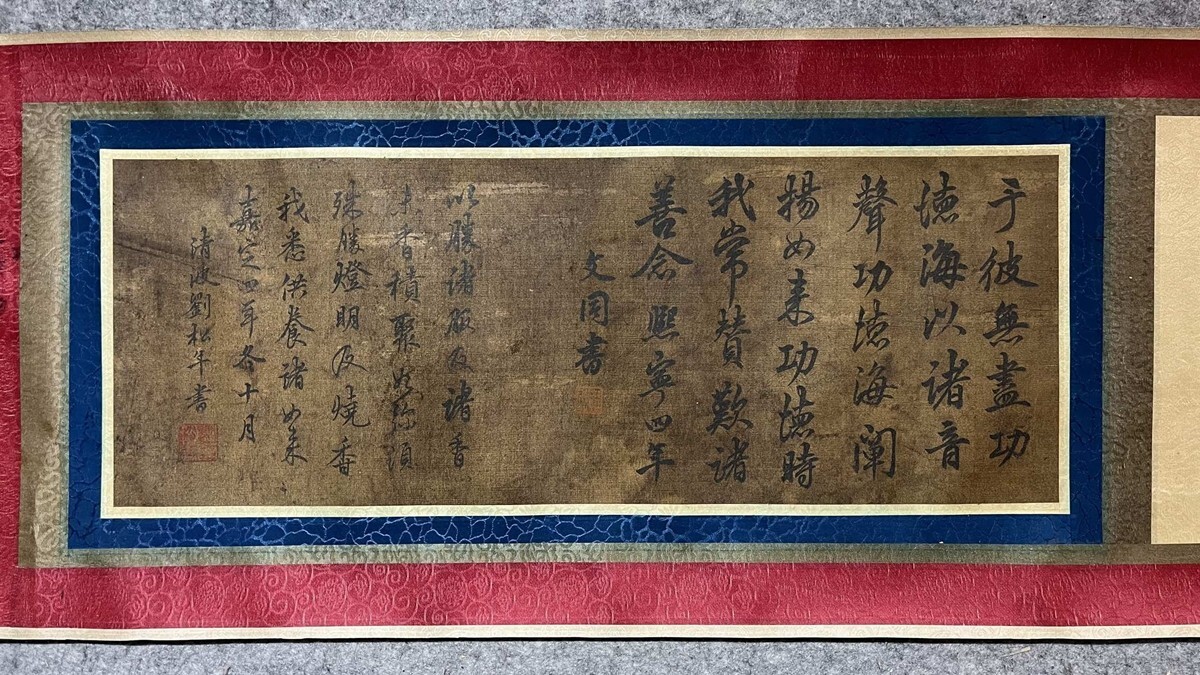 于彼無盡功
徳海以諸音
聲功徳海闡
揚如来功徳時
我常贊歎諸
善念熙寧四年
文同書
以勝諸服及諸香
末香積聚如弥須
殊勝燈明及燒香
我悉供養諸如来
嘉定四年冬十月
清波劉松年書